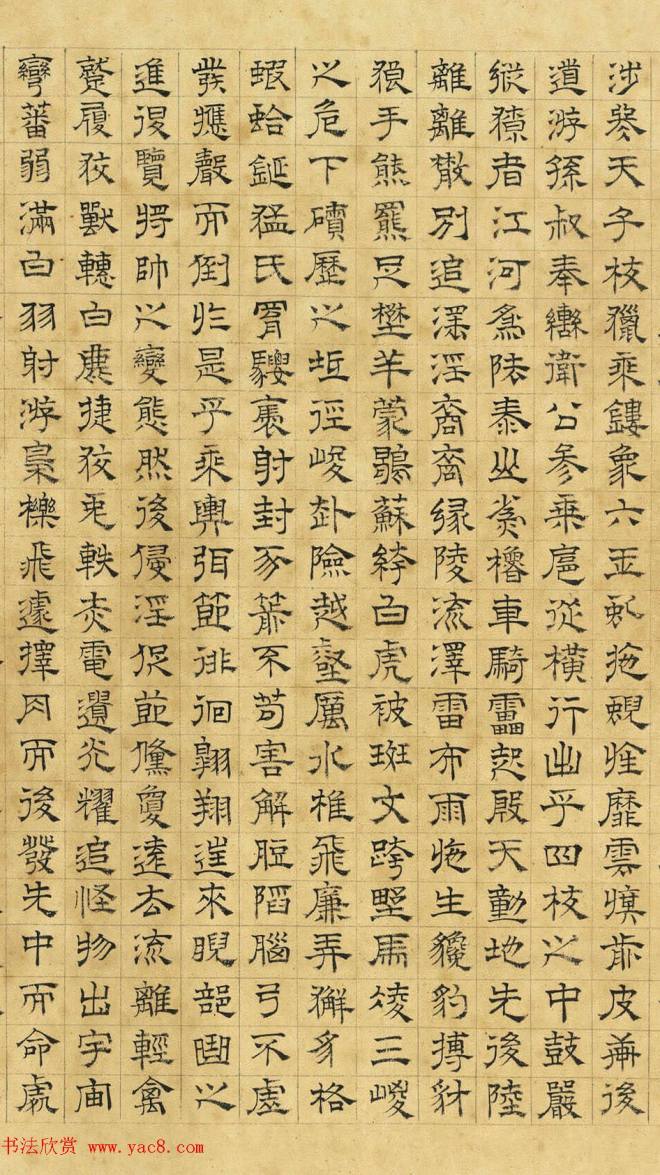 涉冬天子枝獵乘鏤象六玉虯拖蜺旌靡雲旗前皮軒後
道游孫叔奉轡衛公參乘扈從橫行出乎四校之中鼓嚴
縱獠者江河為阹泰山為櫓車騎靁起殷天動地先後陸
離離散別追淫淫裔裔緣陵流澤雷布雨施生貔豹搏豺
狼手熊羆足壄羊蒙鶡蘇絝白虎被斑文跨壄馬凌三嵕
之危下磧歷之坻徑峻赴險越壑厲水椎飛廉弄獬豸格
蝦蛤鋋猛氏羂騕褭射封豕箭不苟害解脰陷腦弓不虛
發應聲而倒於是乎乘輿弭節徘徊翱翔往來睨部曲之
進退覽將帥之變態然後侵淫促節儵夐遠去流離輕禽
蹵履狡獸轊白鹿捷狡兔軼赤電遺光耀追怪物出宇宙
彎蕃弱滿白羽射游梟櫟飛遽擇肉而後發先中而命處
书法欣赏 www.yac8.com